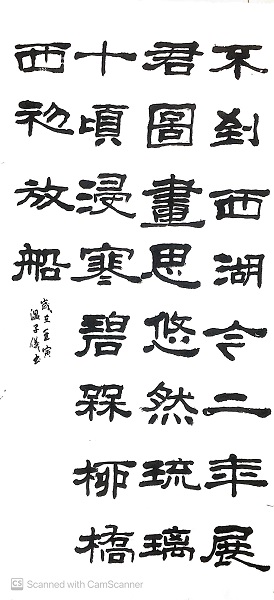 不到西湖今二年展
君圖畫思悠然琉璃
十頃浸寒碧柳橋
西初放船
歲壬寅
溫子儀書
CS Scanned with CamScanner